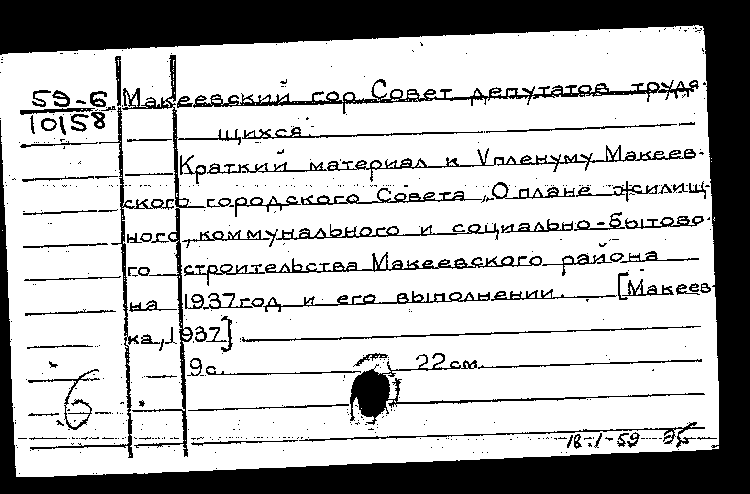 59-6 Макеевский гор Совет депутатов трудя-
10158
щихся.
Краткий материал к V пленуму Макеев-
ского городского Совета „О плане жилищ-
ного, коммунального и социально-бытово-
го строительства Макеевского района
на 1937 год и его выполнении. [Макеев-
ка, 1937]
9с. 22 см.
6
18-1-59